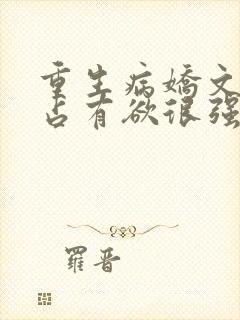 重生病嬌文
占有欲很强
羅晋